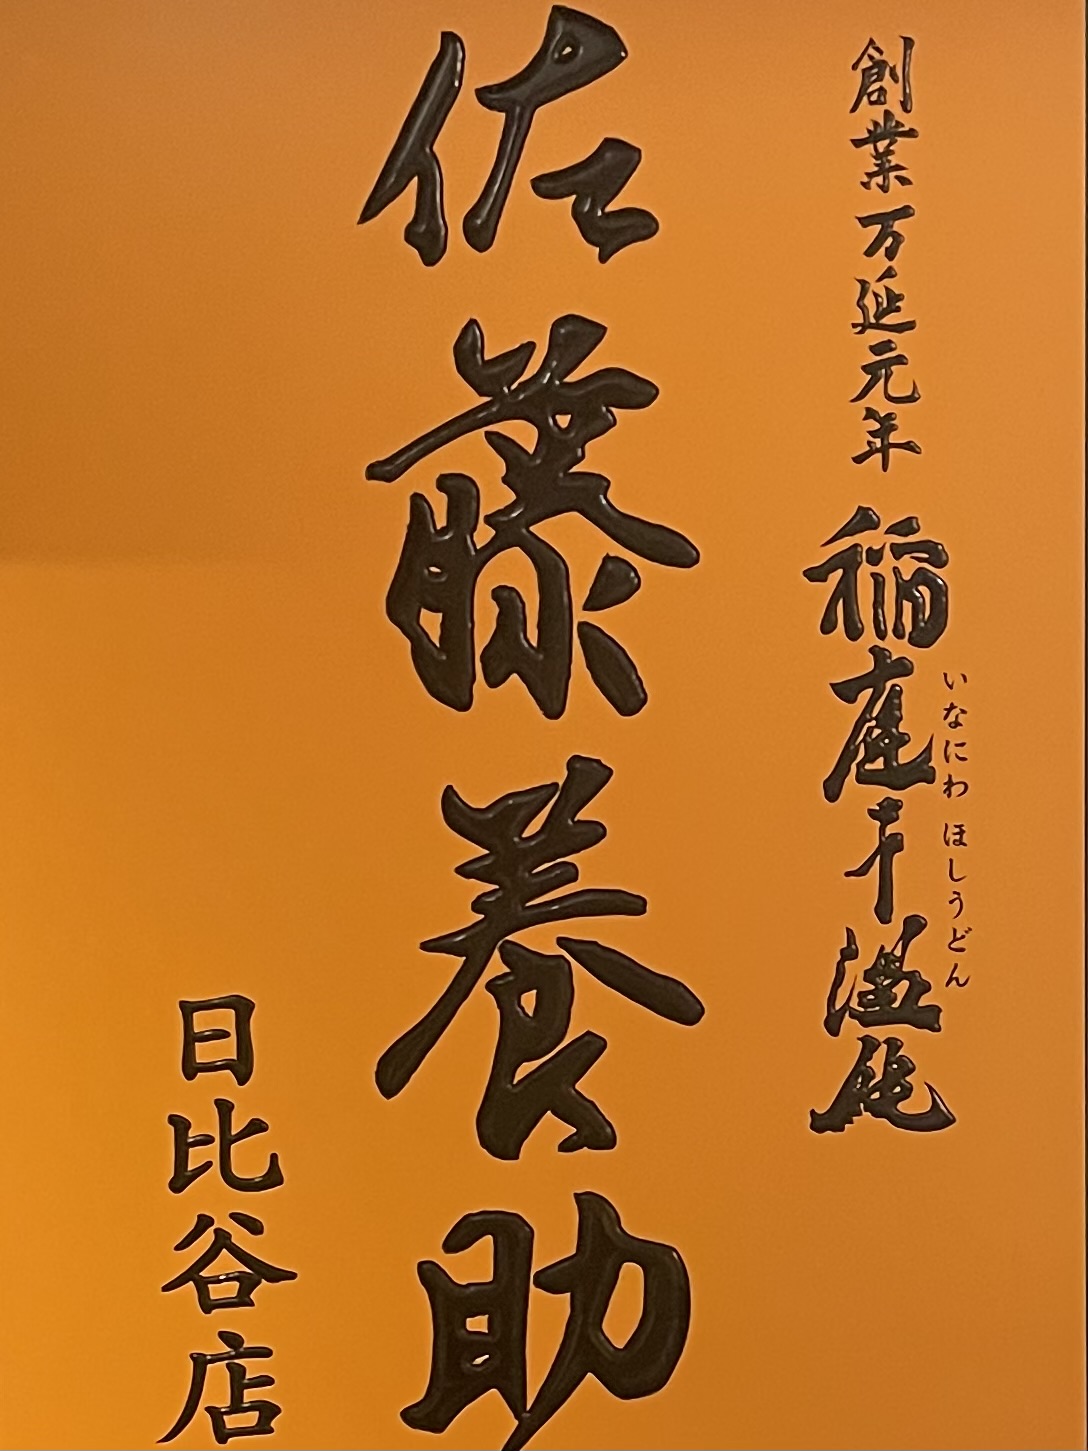 創業万延元年 稲庭干温飩
いなにわ ほしうどん
佐藤養助
日比谷店